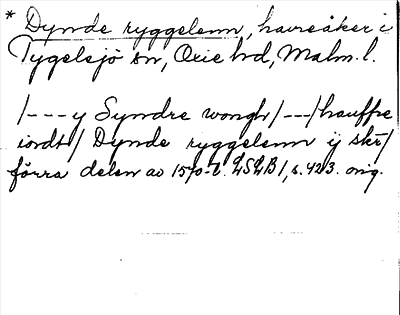 * Dynde ryggelenn, havreåker i
Tygelsjö sn, Oxie hd, Malm. l.
/--- y Syndre wongh/---/hauffre
iordt/ Dynde ryggelenn ij skr/
förra delen av 1570-t. LSLB1, s. 423. orig.